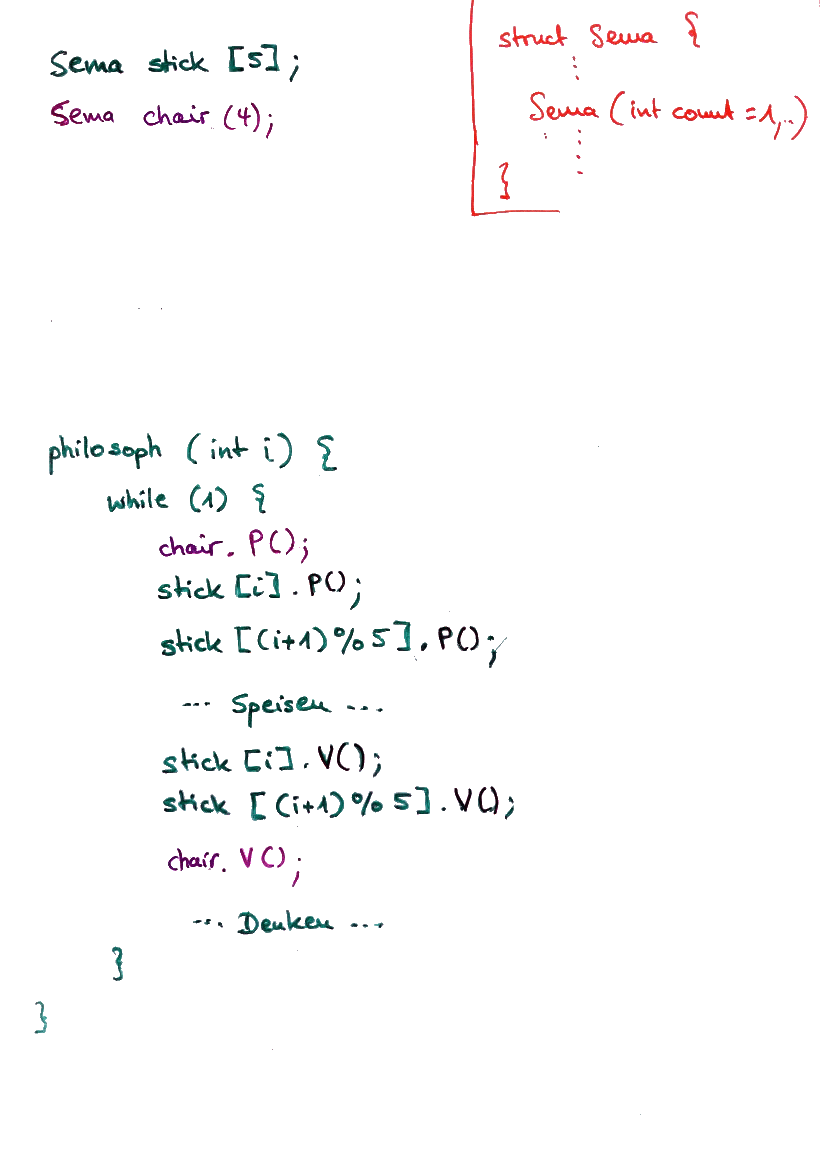 Sema stick [5];
Sema chair (4);
struct Sema {
⋮
Sema (int count = 1,..)
⋮
}
philosoph (int i) {
while (1) {
chair. P();
stick [i]. P();
stick [(i+1)%5]. P();
... Speisen ...
stick [i]. V();
stick [(i+1)%5]. V();
chair. V();
... Denken ...
}
}